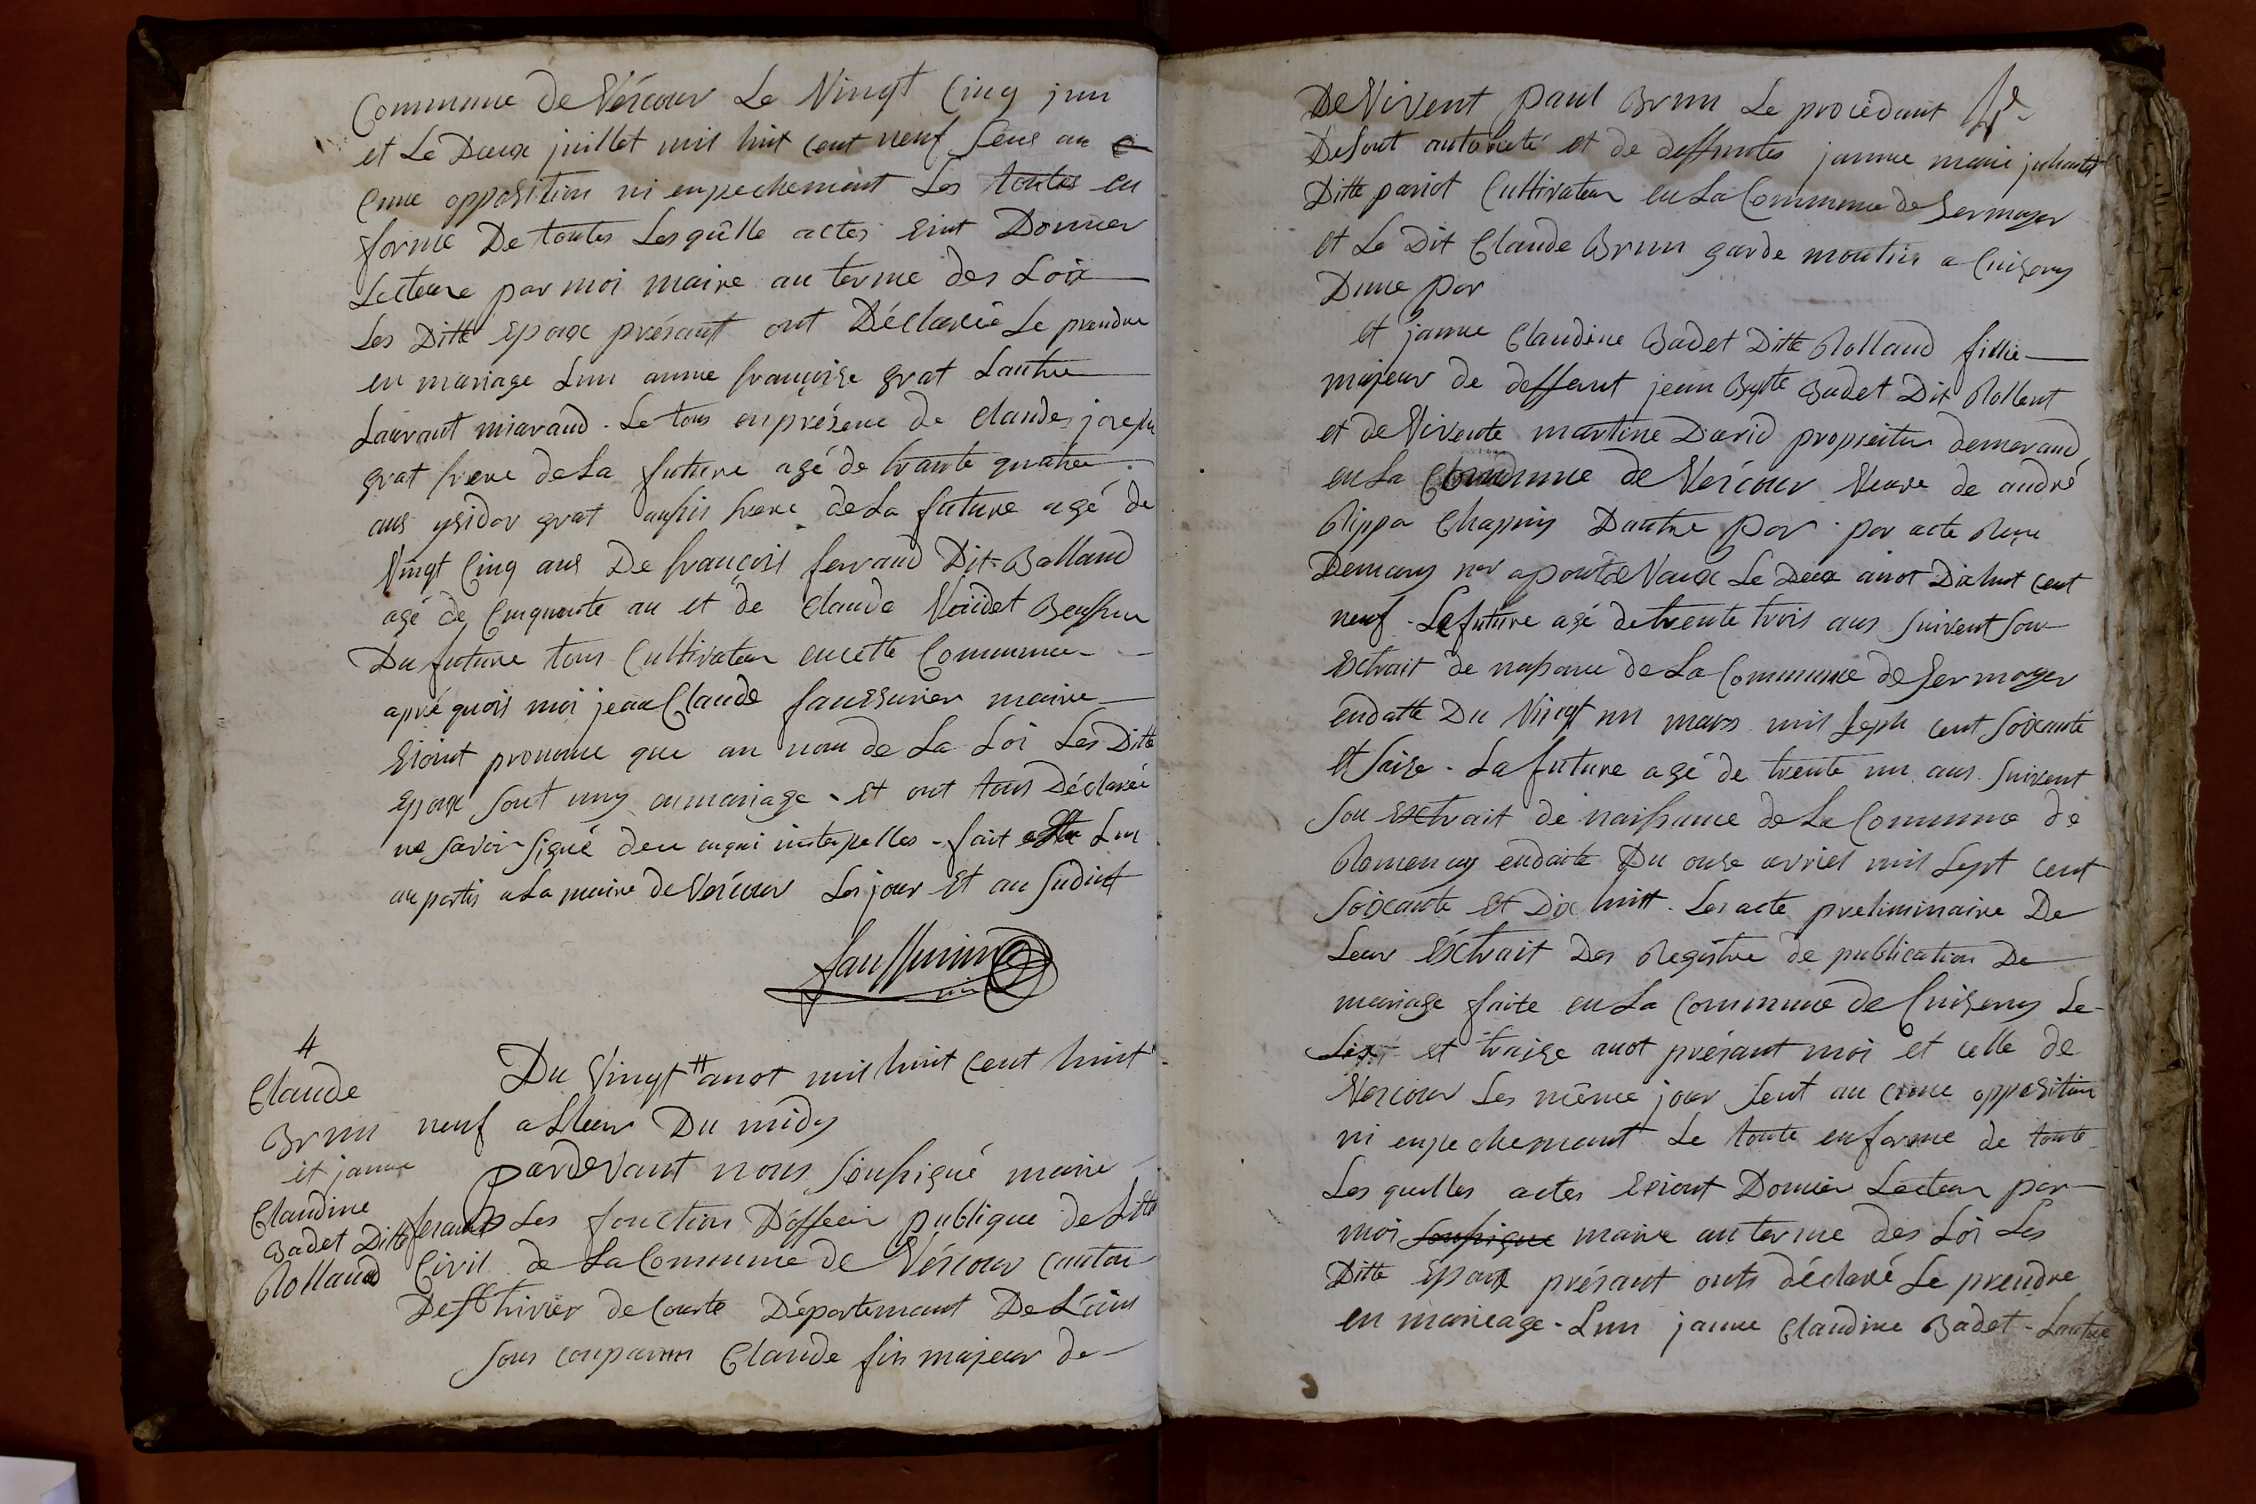 Commune de Véscour Le Vingt Cinq juin
et Le Deux juillet mil huit cent neuf sens au
Cune opposition ni enpechement Les toutes en
forme De toutes Les quêlle actes Donner
Lecteure par moi maire au terme des Loix
Les Ditte Epoux présant ont Déclarée Le prendre
en mariage Lun anne françoise grat Lautre
Laurant miavaud . Le tous en présence de Claude joseph
grat frere de La future agé de trante quatre
ans ysidor grat aussis frere de La future agé de
Vingt Cinq ans De françois ferraud Dit Bolland
agé de Cinquante an et de Claude Voisdet
Du future tous Cultivateur en cette Commune
apré quois moi jean Claude faussurier maire
pronomé que au nom de La Loi Les Ditte
Epoux sont uny en mariage . Et ont tous Déclarée
ne savoir signé deu enqui interpelles - fait Lun
an partis a La mairie de Vescour Les jour Et an sudict
faussurier
4
Claude
Brun
et janne
Claudine
Badet Ditte
Rolland
Du Vingt 4 auot mil huit cent huit
neuf a Lheur Du midy
pardevant nous soussigné maire
fesant Les fonction D'officier publique de L'Etta
Civil de La Commune de Véscour canton
Depthivier de Courte Département De L'ains
sons conparuu Claude fis majeur de
De Vivent paul Brun Le procedant
Desout autoreté et de deffuntes janne marie
Ditte pariot Cultivateur en La Commune de Sermoyer
et Le Dit Claude Brun garde moulin a Cuisery
Dune par
et janne Claudine Badet Ditte Rolland fillie
majeur de deffent jean Bpte Badet Dit Rollent
et de Vivente martine David propriaiter demeurand
en La Commune de Vescour Veuve de andré
Rippa Chapuy Dautre par . par acte Reçu
Demary nre a pont de Vaux Le Deux auot Dixhuit cent
neuf . Le future agé de trente trois ans suivent son
Extrait de nassance de La Commune de Sermoyer
endatte Du Vingt un mars mil sept cent soixante
et saise . La future agé de trente un ans suivent
son Extrait de naissance de La Commune de
Romenay endatte Du onze avriel mil sept cent
soixante et Dix huitt . Les acte preliminaire De
Leur Extrait Des Registre de publication De
mariage faite en La Commune de Cuisery Le
Sixt et traize auot présant moi et celle de
Vescour Les même jour sent au cune opposition
ni enpechemant Le toute en forme de toute
Les quelles actes Donner Lecteur par
moi soussigne maire au terme des Loi Les
Ditte Epoux présant onts déclaré Le prendre
en marieage . Lun janne Claudine Badet - Lautre